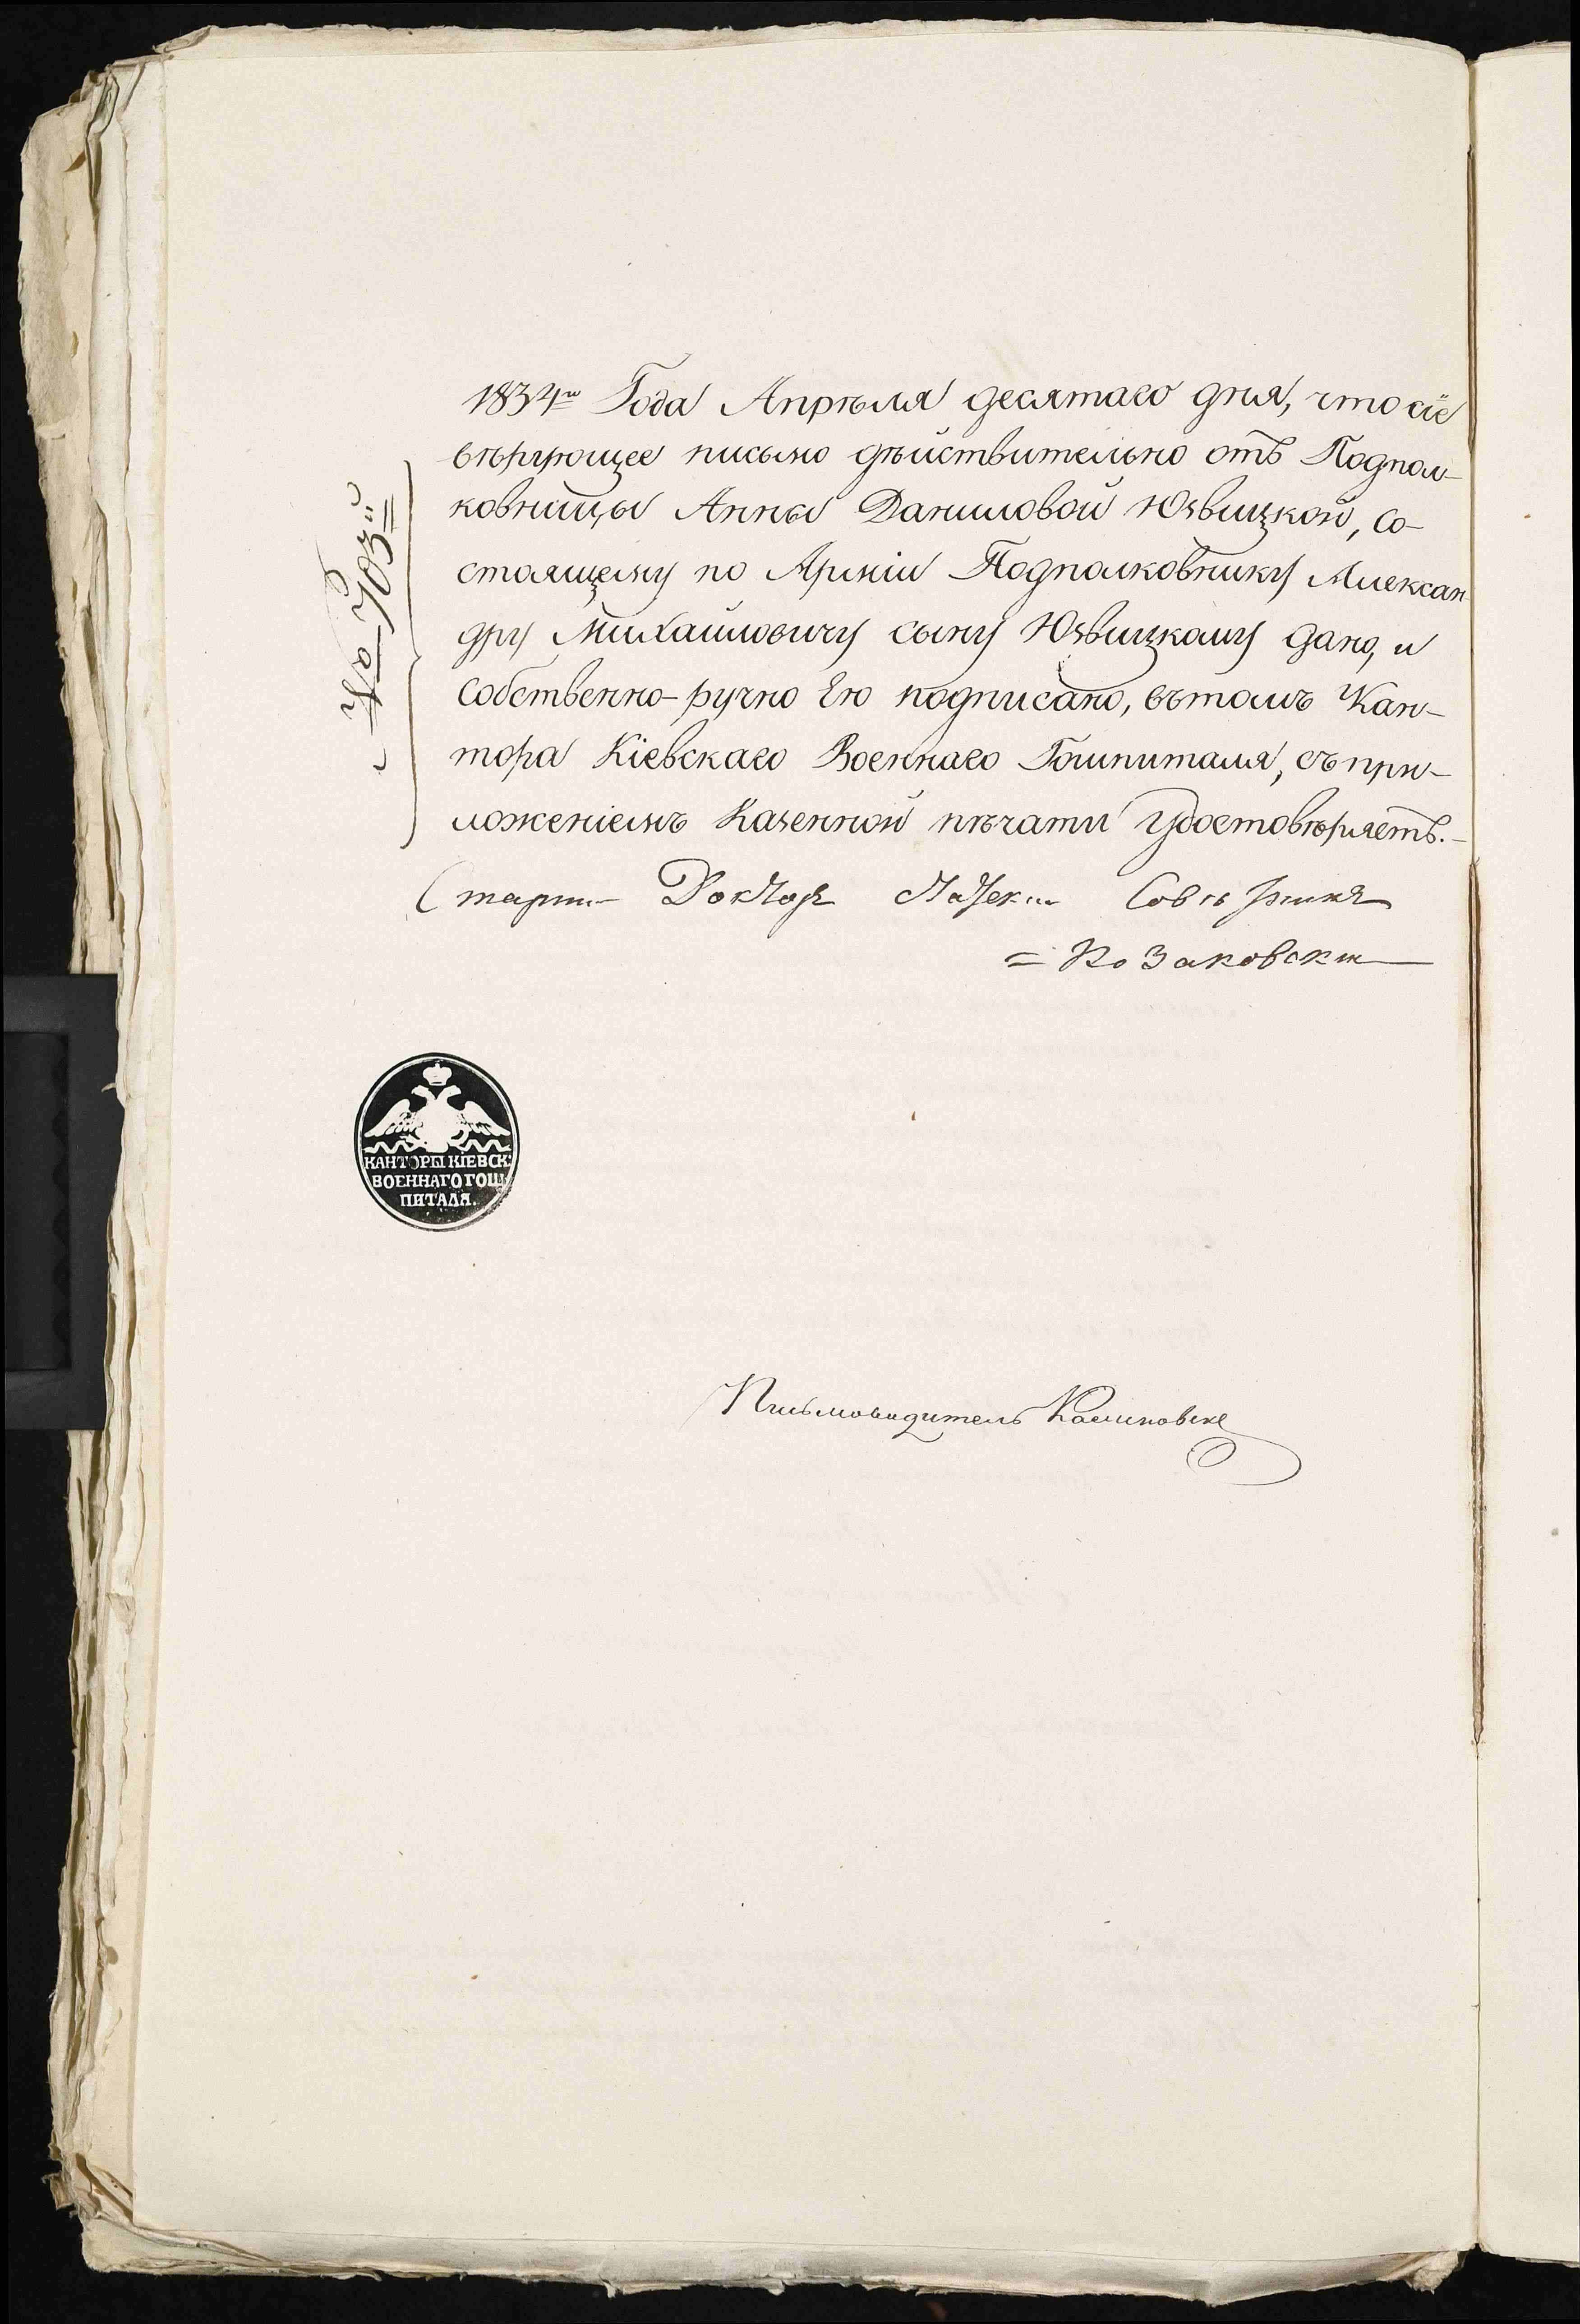 1834го Года Апрѣля десятаго дня, что сіе
вѣрующее письмо дѣйствительно отъ Подпол-
ковницы Анны Даниловой Юзвицкой, Со-
стоящему по Арміи Подполковнику Алексан
дру Михайловичу сыну Юзвицкому дано, и
Собственно-ручно Ею подписано, вътомъ Кан-
тора Кіевскаго Военнаго Гошпиталя, съ при-
ложеніемъ Казенной пѣчати Удостовѣряетъ.-
№ 703й
Докторъ
= Козаковски
КАНТОРЫ КІЕВСК:
ВОЕННАГО ГОШ
ПИТАЛЯ.
Письмоводитель